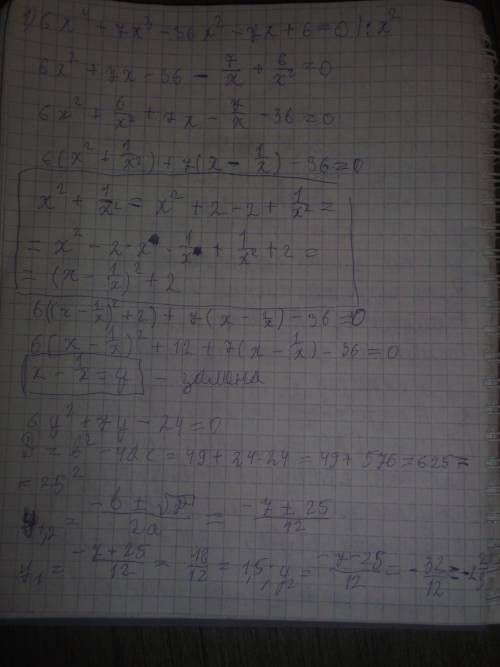 1) 6x⁴ + 7x³ - 36x² - 7x + 6 = 0 |: x²
6x² + 7x - 36 - 7/x + 6/x² = 0
6x² + 6/x² + 7x - 7/x - 36 = 0
6(x² + 1/x²) + 7(x - 1/x) - 36 = 0
x² + 1/x² = x² + 2 - 2 + 1/x² =
= x² - 2 · x · 1/x + 1/x² + 2 =
= (x - 1/x)² + 2
6((x - 1/x)² + 2) + 7(x - 1/x) - 36 = 0
6(x - 1/x)² + 12 + 7(x - 1/x) - 36 = 0
x - 1/x = y - замена
6y² + 7y - 24 = 0
D = b² - 4ac = 49 + 24·24 = 49 + 576 = 625 =
= 25²
y₁,₂ = (-b ± √D)/2a = (-7 ± 25)/12
y₁ = (-7 + 25)/12 = 18/12 = 1,5, y₂ = (-7 - 25)/12 = -32/12 =